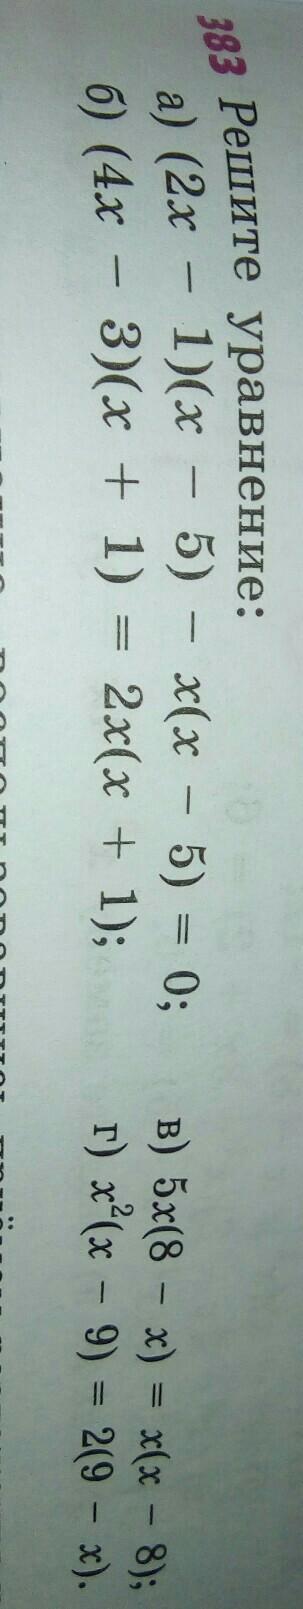 383 Решите уравнение:
а) (2x − 1)(x − 5) − x(x − 5) = 0; в) 5x(8 − x) = x(x − 8);
б) (4x − 3)(x + 1) = 2x(x + 1); г) x²(x − 9) = 2(9 − x).